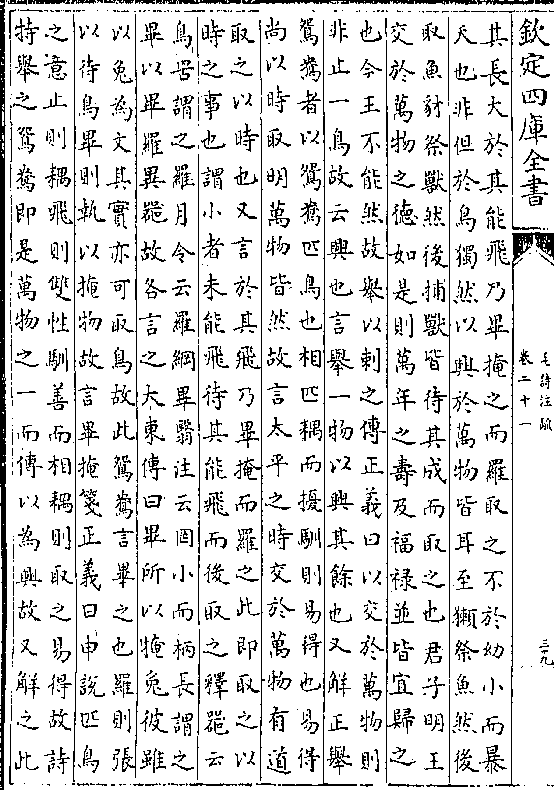 欽定四庫全書
毛詩注疏
卷二十一
三九
其長大於其能飛乃畢掩之而羅取之不於幼小而暴
天也非但於鳥獨然以興於萬物皆耳至獺祭魚然後
取魚豺祭獸然後捕獸皆待其成而取之也君子明王
交於萬物之德如是則萬年之壽及福祿並皆宜歸之
也今王不能然故舉以刺之傳正義曰以交於萬物則
非止一鳥故云興也言舉一物以興其餘也又解正舉
鴛鴦者以鴛鴦匹鳥也相匹耦而擾馴則易得也易得
尚以時取明萬物皆然故言太平之時交於萬物有道
取之以時也又言於其飛乃畢掩而羅之此即取之以
時之事也謂小者未能飛待其能飛而後取之釋器云
鳥罟謂之羅月令云羅網畢翳注云罔小而柄長謂之
畢以畢羅異器故各言之大東傳曰畢所以掩兔彼雖
以兔為文其實亦可取鳥故此鴛鴦言畢之也羅則張
以待鳥畢則執以掩物故言畢掩箋正義曰申說匹鳥
之意止則耦飛則雙性馴善而相耦則取之易得故詩
特舉之鴛鴦即是萬物之一而傳以為興故又解之此